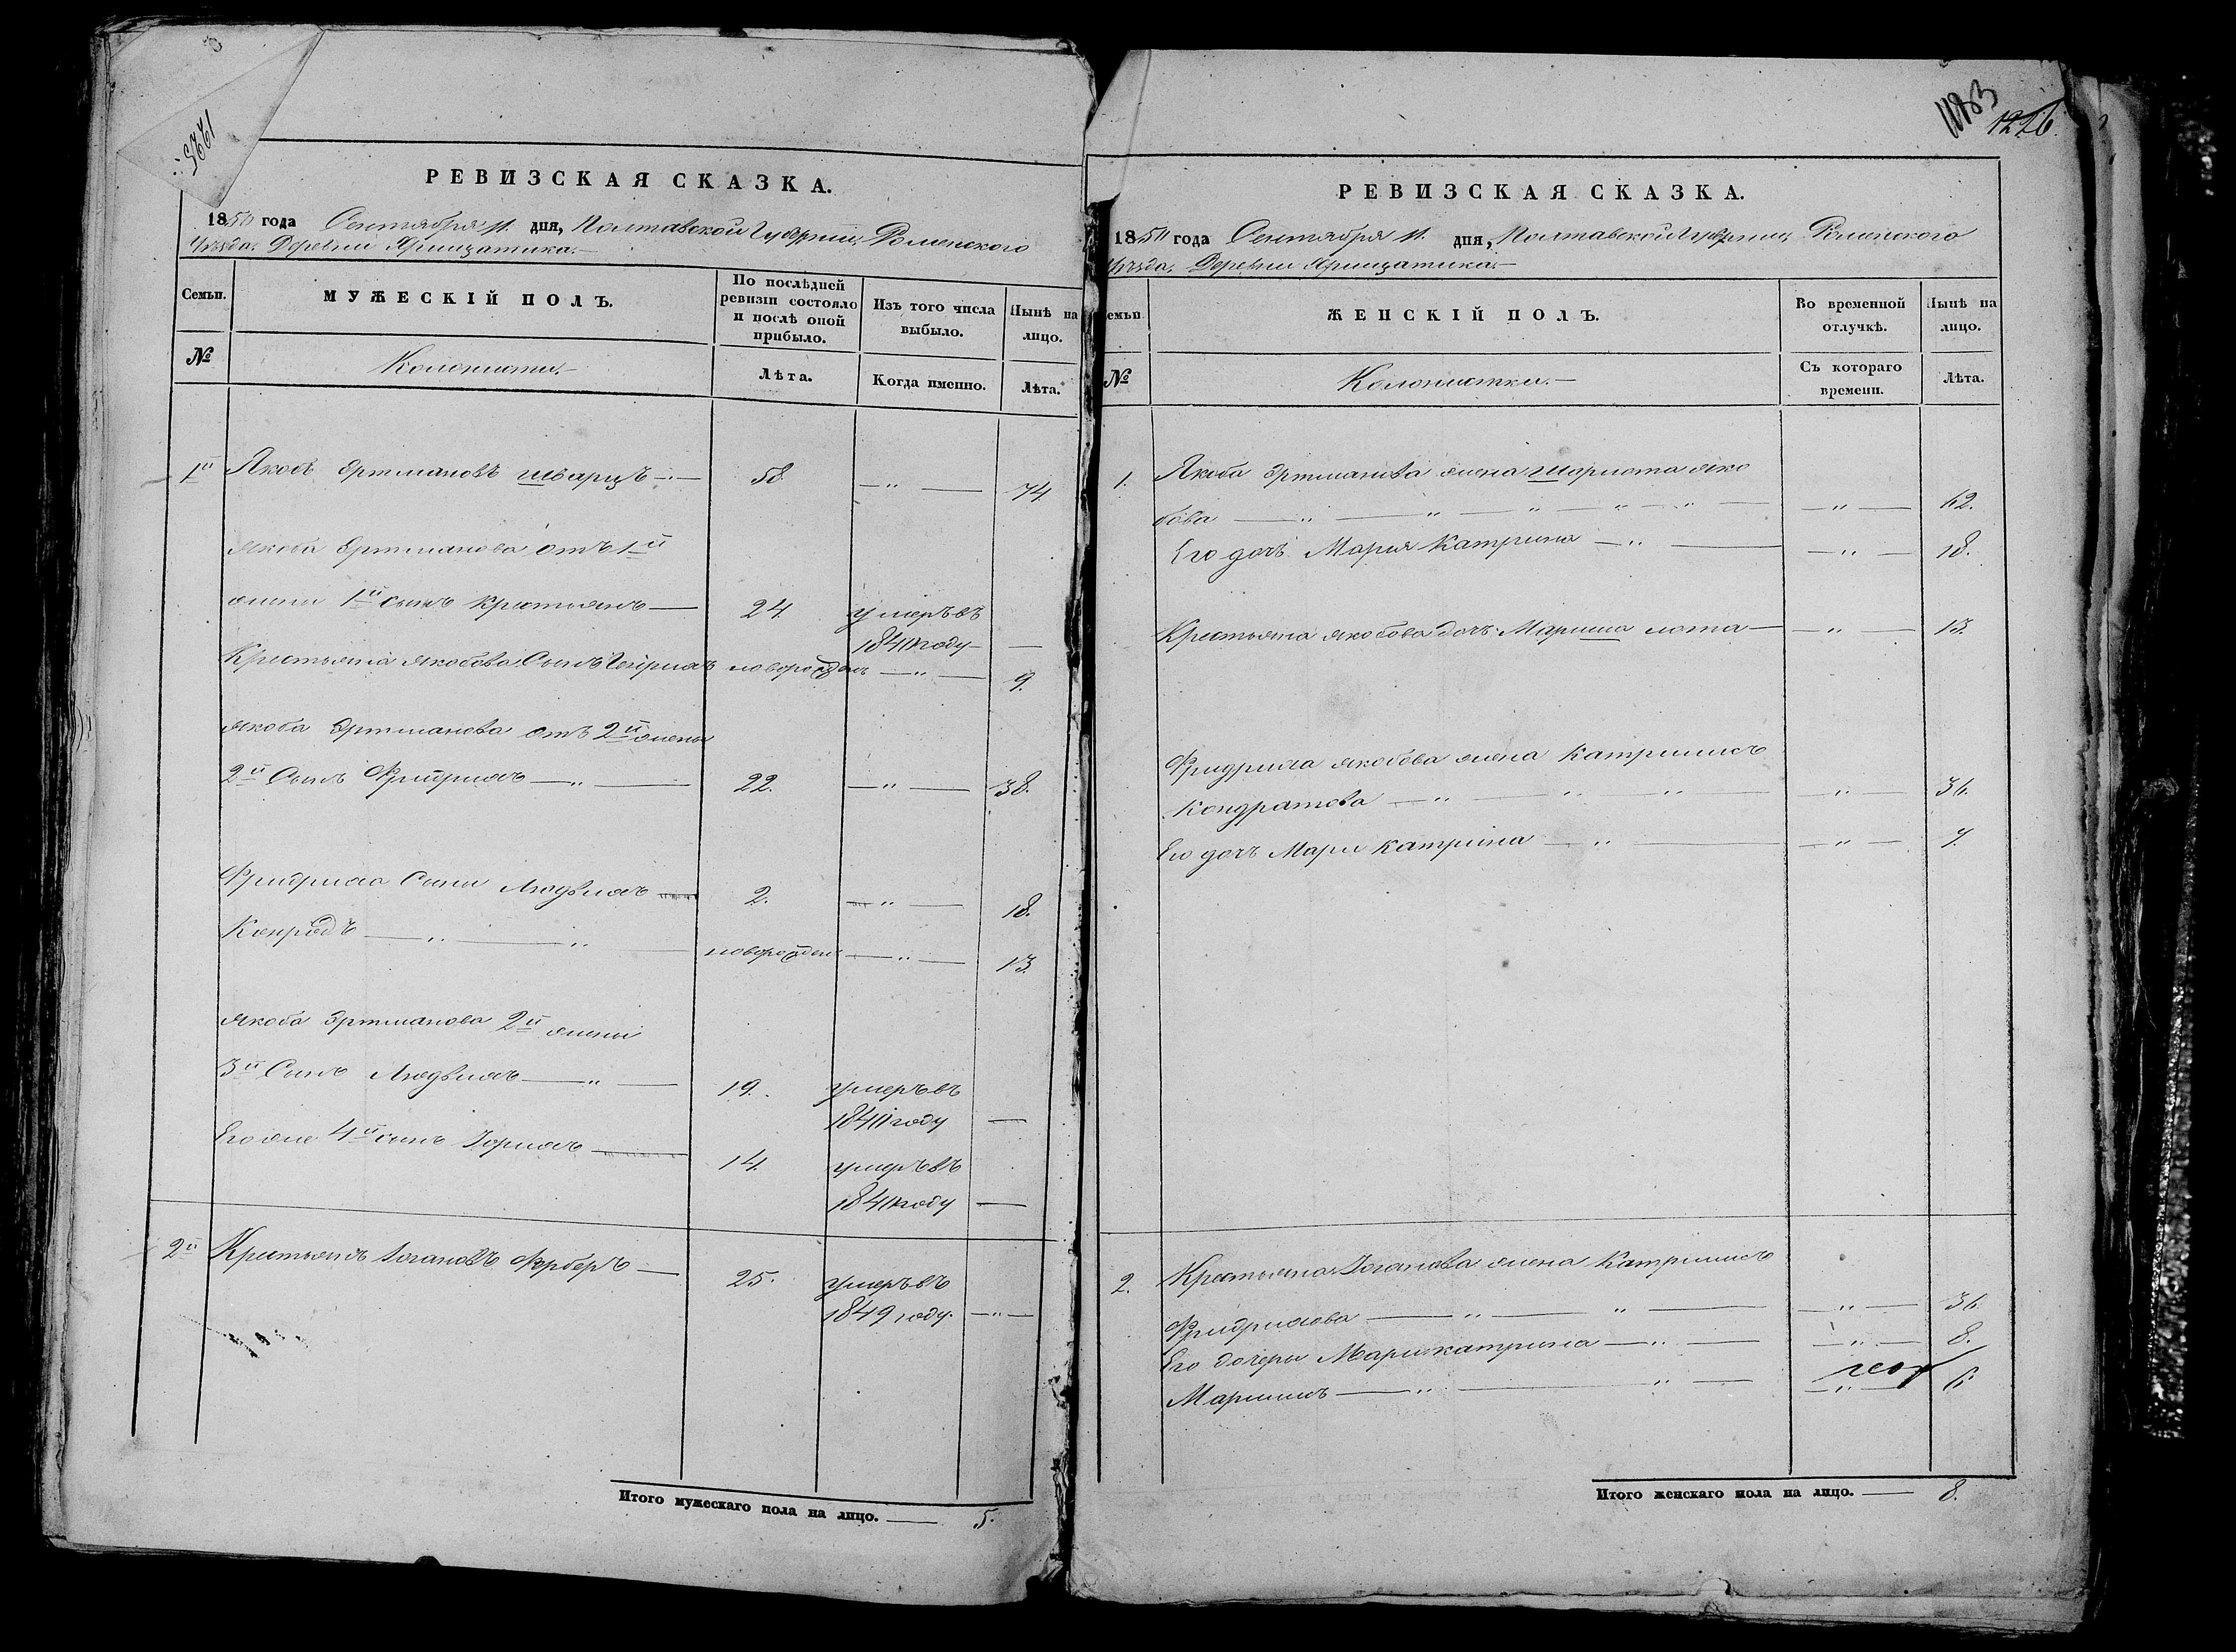 1225
РЕВИЗСКАЯ СКАЗКА.
1850 года Сентября 11. дня, Полтавской Губерніи, Роменского
Уѣзда. Деревни
Семьи.
МУЖЕСКІЙ ПОЛЪ.
По послѣдней ревизіи состояло и послѣ оной прибыло.
Изъ того числа выбыло.
Нынѣ на лицо.
№
Колонисты.
Лѣта.
Когда именно.
Лѣта.
1й Якобъ Эртмановъ шварцъ — 58. — " — 74
Якоба Эртманова отъ 1й
жены 1й сынъ Крестьянъ — 24. умеръ въ
1840 году — —
Крестьяна якобова Сынъ Гейрихъ новорожденъ — " — 9.
якоба Эртманова отъ 2й жены
2й Сынъ Фридрихъ — " — 22. — " — 38.
Фридриха Сыны Людвихъ — 2. — " — 18.
Конрадъ — " — " — новорожден — " — 13.
Якоба Эртманова 2й жены
3й Сынъ Людвихъ — " — 19. умеръ въ
1840 году —
Его же 4й сынъ — 14. умеръ въ
1840 году —
2й Крестьянъ Югановъ Ферберъ — 25. умеръ въ
1849 году. — " —
Итого мужескаго пола на лицо. — 5.
1183
1226
РЕВИЗСКАЯ СКАЗКА.
1850 года Сентября 11. дня, Полтавской Губерніи, Роменского
Уѣзда. Деревни
Семьи
ЖЕНСКІЙ ПОЛЪ.
Во временной отлучкѣ.
Нынѣ на лицо.
№
Колонистки. —
Съ котораго времени.
Лѣта.
1. Якоба Эртманова жена шарлота яко
бова — " — " — " — " — " — — " — 62.
Его дочь Мария Катрина — " — — " — 18.
Крестьяна якобова дочь лота — — " — 13.
Фридриха якобова жена Катринись
Кондратова — " — " — " — — " — 36.
Его дочь Мари Катрина — " — — " — 7.
2. Крестьяна Юганова жена Катринись
Фридрихова — " — " — — " — 36.
Его дочеры Марикатрина — " — — " — 8.
— " — " — — " — 6
Итого женскаго пола на лицо. — 8.